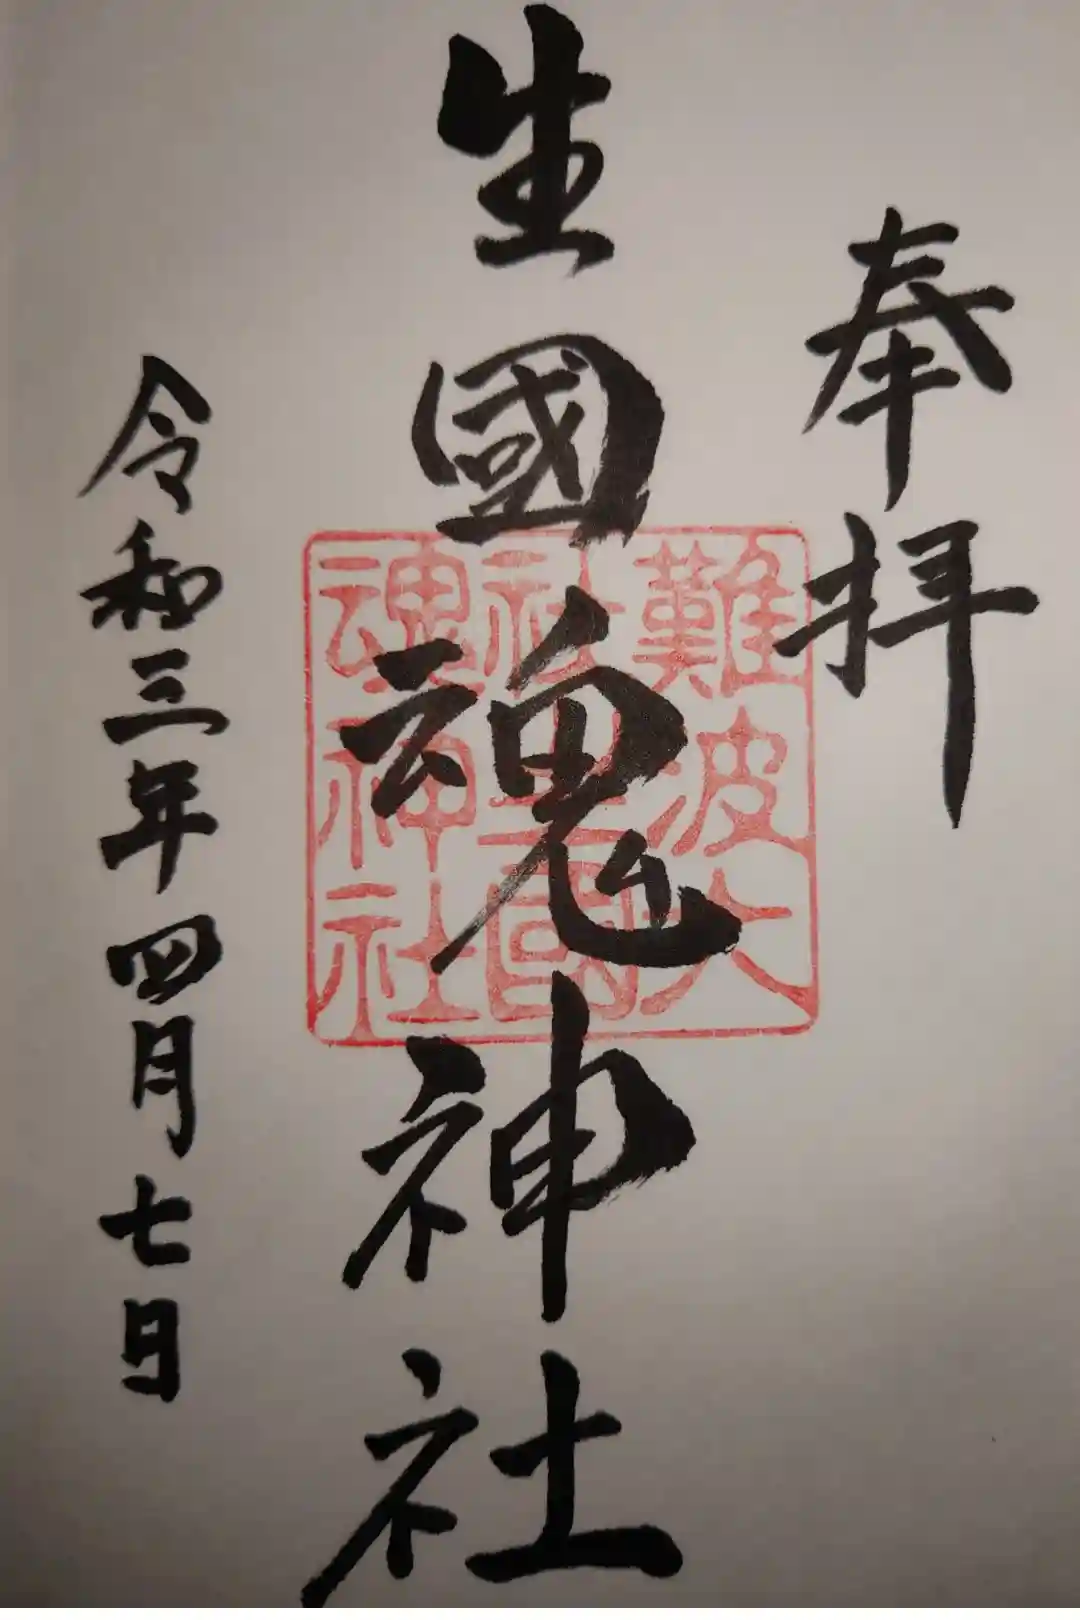 奉拝
生國魂神社
難波大
社生國
魂神社
令和三年四月七日